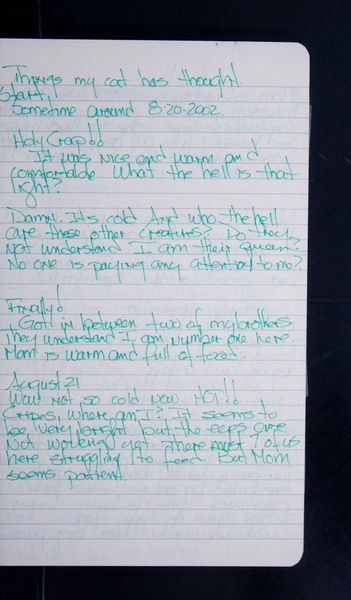 Things my cat has thought.
Start!
Sometime around 8-20-2002.
Holy Crap!!
It was nice and warm and
comfortable. What the hell is that
light?
Damn. It's cold And who the hell
are these other creatures? Do they
not understand I am their queen?
No one is paying any attention to me?
Finally!
Got in between two of my brothers
They understand I am number one here.
Mom is warm and full of food.
August 21
Wow Not so cold now. HOT!!
Cripes, where am I? It seems to
be very bright but the eyes are
not working yet. There must 7 of us
here struggling to feed. But Mom
seems patient.